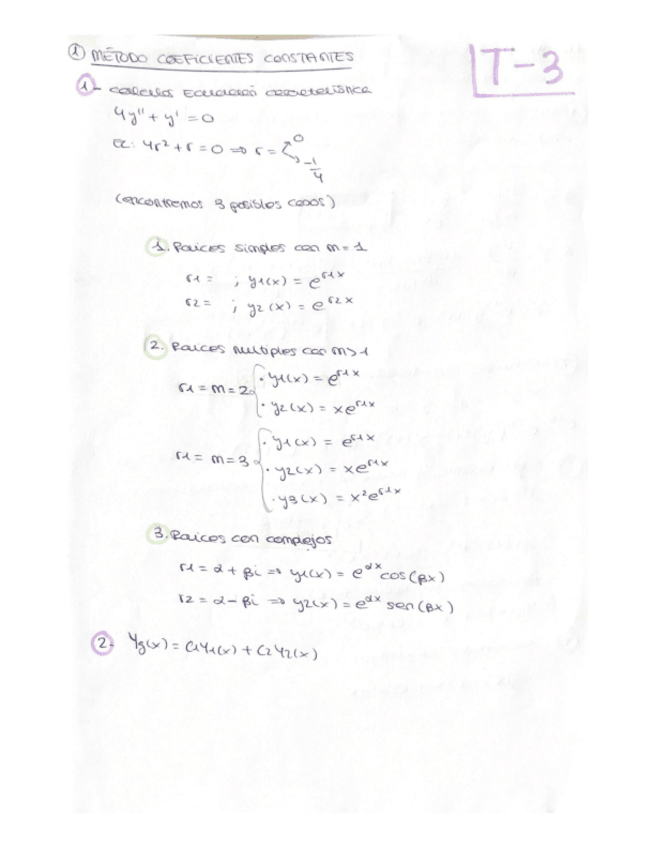 ① MÉTODO COEFICIENTES CONSTANTES
T-3
1- calculos Ecuación característica
4y'' + y' = 0
EC: 4r² + r = 0 ⇒ r = 0
-1/4
(encontremos 3 posibles casos)
1. Raices simples con m = 1
r1 = ; y1(x) = e^r1x
r2 = ; y2(x) = e^r2x
2. Raices multiples con m>1
r1 = m = 2 · y1(x) = e^r1x
· y2(x) = xe^r1x
r1 = m = 3 · y1(x) = e^r1x
· y2(x) = xe^r1x
· y3(x) = x²e^r1x
3. Raices con complejos
r1 = α + βi ⇒ y1(x) = e^αx cos(βx)
r2 = α - βi ⇒ y2(x) = e^αx sen(βx)
2- Yg(x) = C1Y1(x) + C2Y2(x)